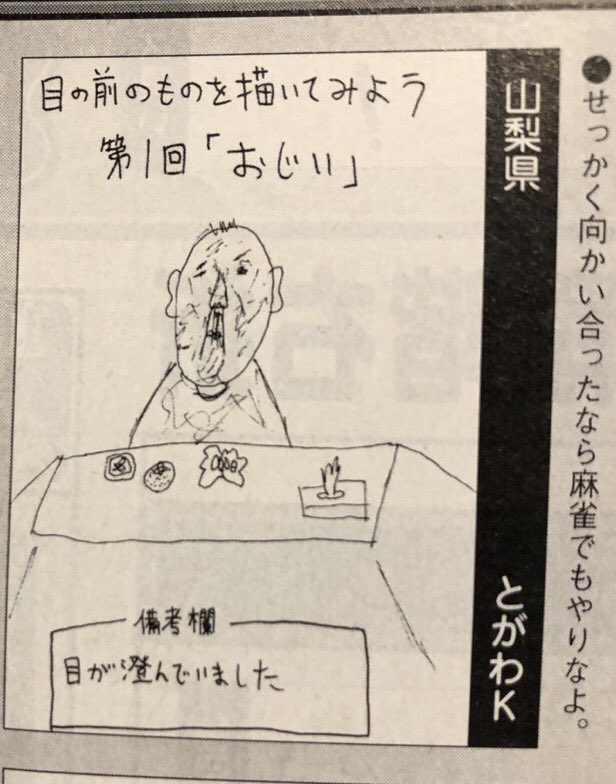 ●せっかく向かい合ったなら麻雀でもやりなよ。
山梨県 とがわK
目の前のものを描いてみよう
第1回「おじい」
備考欄
目が澄んでいました